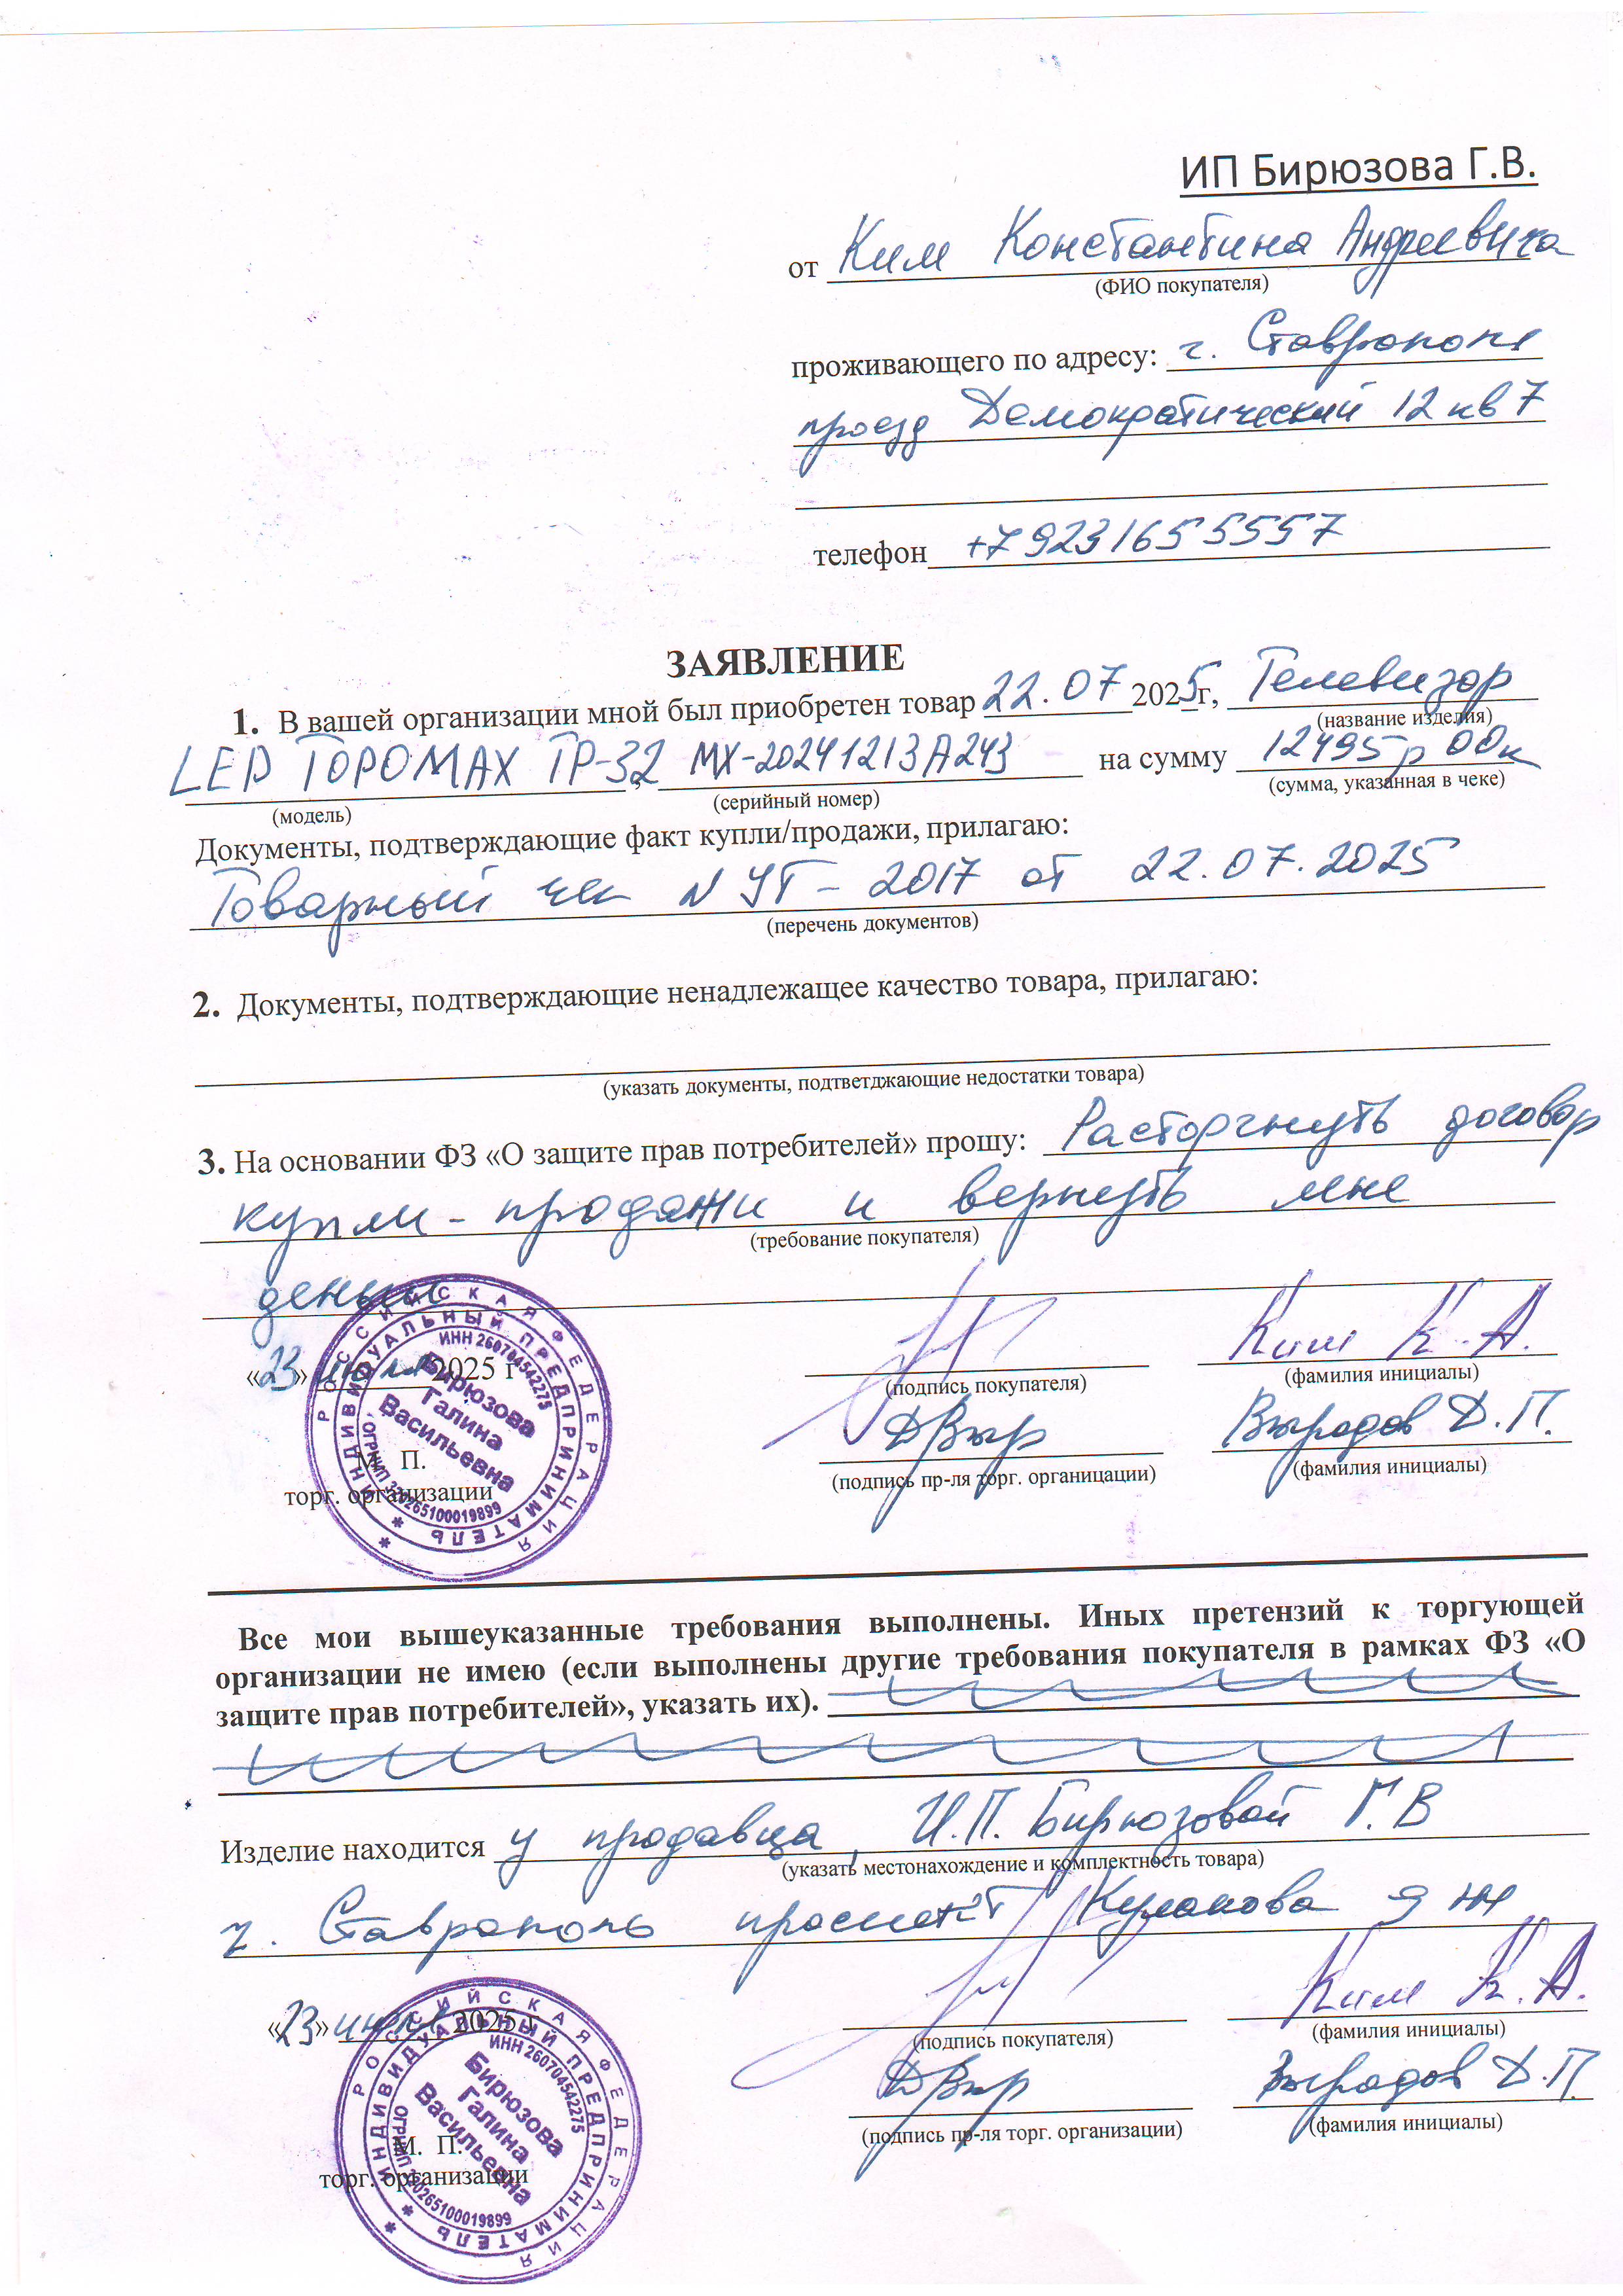 ИП Бирюзова Г.В.
от Ким Константина Андреевича
(ФИО покупателя)
проживающего по адресу: г. Ставрополь
проезд Демократический 12 кв 7
телефон +79231655557
ЗАЯВЛЕНИЕ
1. В вашей организации мной был приобретен товар 22.07 2025 г, Телевизор
(название изделия)
LED TOPOMAX TP-32, MX-20241213A243 на сумму 12495р 00к
(модель) (серийный номер) (сумма, указанная в чеке)
Документы, подтверждающие факт купли/продажи, прилагаю:
Товарный чек N УТ-2017 от 22.07.2025
(перечень документов)
2. Документы, подтверждающие ненадлежащее качество товара, прилагаю:
(указать документы, подтветджающие недостатки товара)
3. На основании ФЗ «О защите прав потребителей» прошу: Расторгнуть договор
купли-продажи и вернуть мне
(требование покупателя)
деньги
«23» июля 2025 г
(подпись покупателя) Ким К.А. (фамилия инициалы)
ДВыр Выродов Д.П.
(подпись пр-ля торг. органицации) (фамилия инициалы)
М. П.
торг. организации
РОССИЙСКАЯ ФЕДЕРАЦИЯ
ИНДИВИДУАЛЬНЫЙ ПРЕДПРИНИМАТЕЛЬ
ИНН 260704542275
Бирюзова
Галина
Васильевна
ОГРНИП 320265100019899
Все мои вышеуказанные требования выполнены. Иных претензий к торгующей
организации не имею (если выполнены другие требования покупателя в рамках ФЗ «О
защите прав потребителей», указать их).
Изделие находится у продавца, И.П. Бирюзовой Г.В
(указать местонахождение и комплектность товара)
г. Ставрополь проспект Кулакова
«23» июля 2025 г
(подпись покупателя) Ким К.А. (фамилия инициалы)
ДВыр Выродов Д.П.
(подпись пр-ля торг. организации) (фамилия инициалы)
М. П.
торг. организации
РОССИЙСКАЯ ФЕДЕРАЦИЯ
ИНДИВИДУАЛЬНЫЙ ПРЕДПРИНИМАТЕЛЬ
ИНН 260704542275
Бирюзова
Галина
Васильевна
ОГРНИП 320265100019899